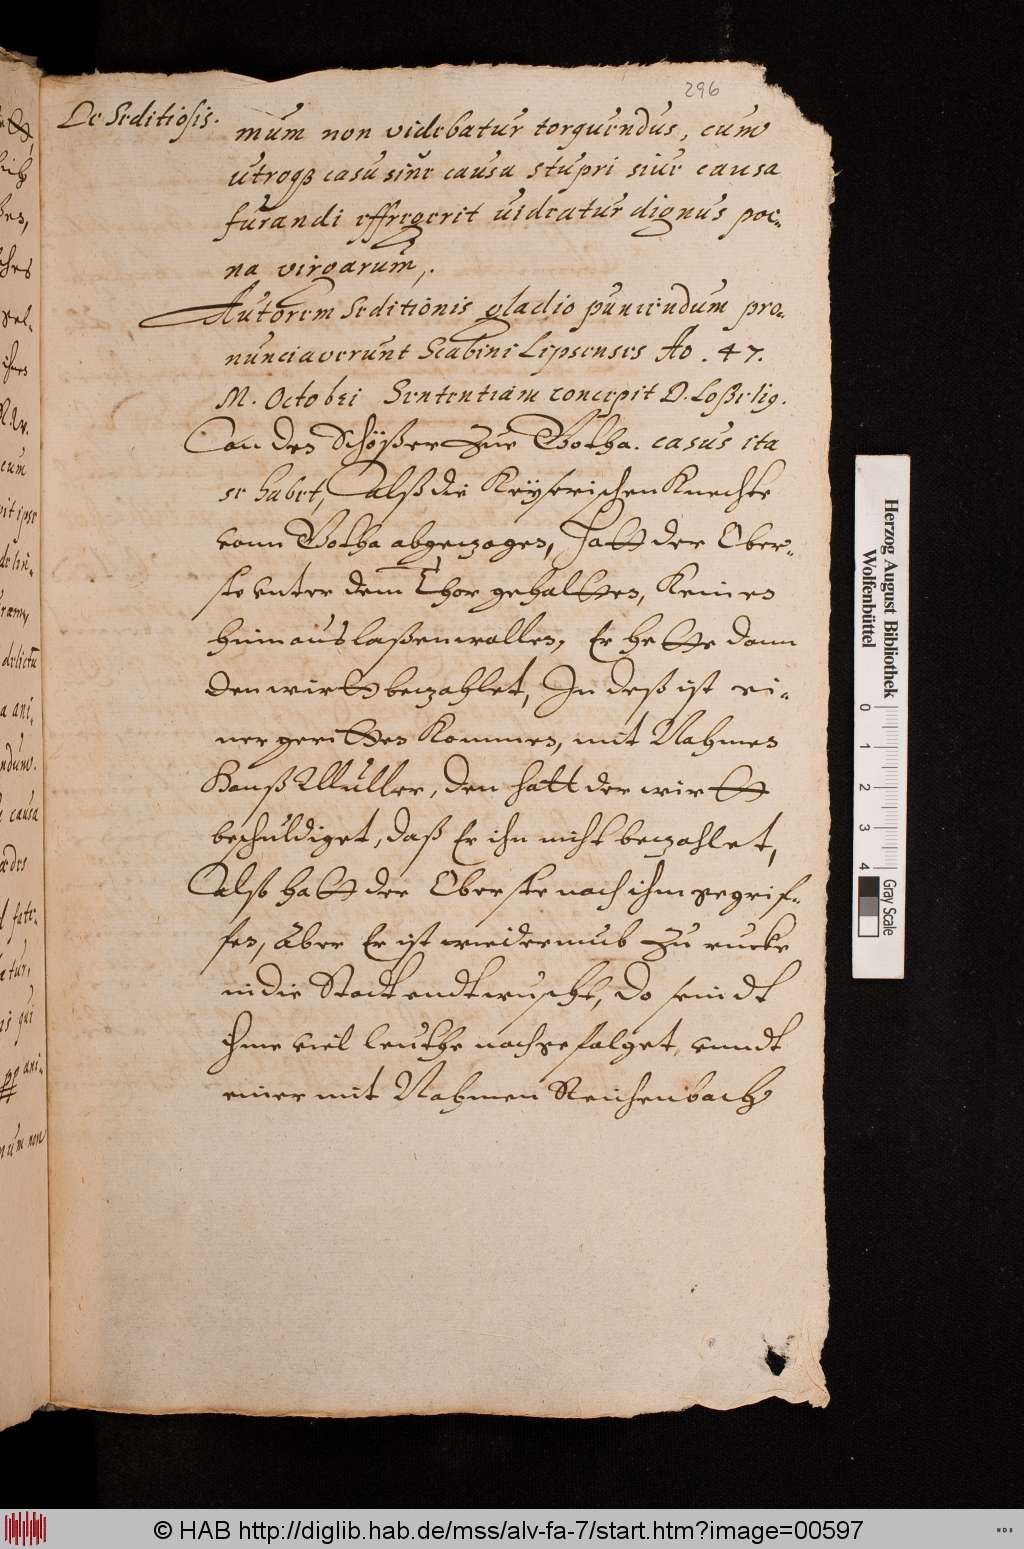 296
De Seditiosis.
mum non videbatur torquendus, cum
utroq3 casu sive causa stupri sive causa
furandi effregerit videatur dignus poe-
na virgarum,.
Autorem Seditionis gladio puniendum pro-
nunciaverunt Scabini Lipsenses Ao. 47.
M. Octobri Sententiam concepit D. Loße lig.
An den Schößer zue Gotha. casus ita
se habet, Alß die Keyserischen Knechte
vonn Gotha abgezogen, Hatt der Ober-
ste unter dem Thor gehaltten, Keinen
hinnaus laßen wollen, Er hette dann
den wirtt bezahlet, In deß ist ei-
ner geritten Kommen, mit Nahmen
Hanß Müller, den hatt der wirtt
beschuldiget, daß Er ihn nicht bezahlet,
Also hatt der Oberste nach ihm gegrif-
fen, Aber Er ist wiederumb zu rucke
in die Stadt endtwuscht, Do seindt
ihme viel leuthe nachgefolget, unndt
einer mit Nahmen Reichenbach
Herzog August Bibliothek
Wolfenbüttel
0 1 2 3 4
Gray Scale
© HAB http://diglib.hab.de/mss/alv-fa-7/start.htm?image=00597